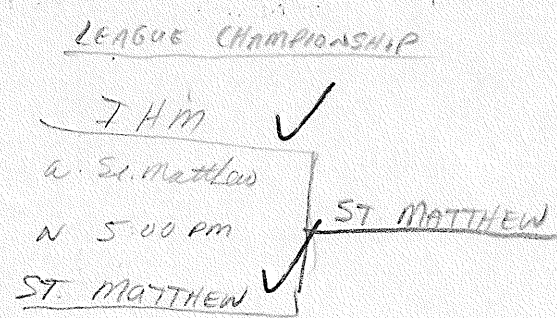 LEAGUE CHAMPIONSHIP
IHM
a. St. Matthew
N 5:00 PM
ST MATTHEW
ST. MATTHEW